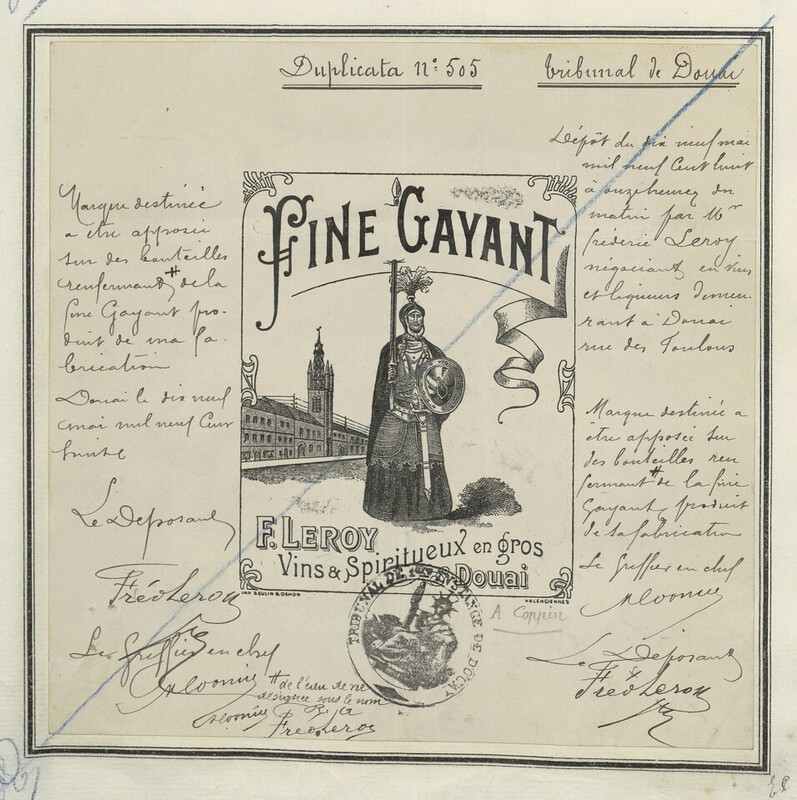 Duplicata n° 505
Tribunal de Douai
Marque destinée
a être apposée
sur des bouteilles
renfermant # de la
fine Gayant pro-
duit de ma fa-
brication
Douai le dix neuf
mai mil neuf Cent
huit
Le Déposant
FrédLeroy
Le Greffier en chef
# de l'eau de vie
désignée sous le nom
de la
FredLeroy
FINE GAYANT
F. LEROY
Vins & Spiritueux en gros
Douai
IMP. SEULIN & DEHON
VALENCIENNES
TRIBUNAL DE 1ère INSTANCE DE DOUAI
A Coppin
Dépôt du dix neuf mai
mil neuf Cent huit
à onze heures du
matin par Mr
fréderic Leroy
négociant en vins
et liqueurs demeu-
rant à Douai
rue des Foulons
Marque destinée a
être apposée sur
des bouteilles ren
fermant # de la fine
Gayant, produit
de sa fabrication
Le Greffier en chef
Le Déposant
FrédLeroy